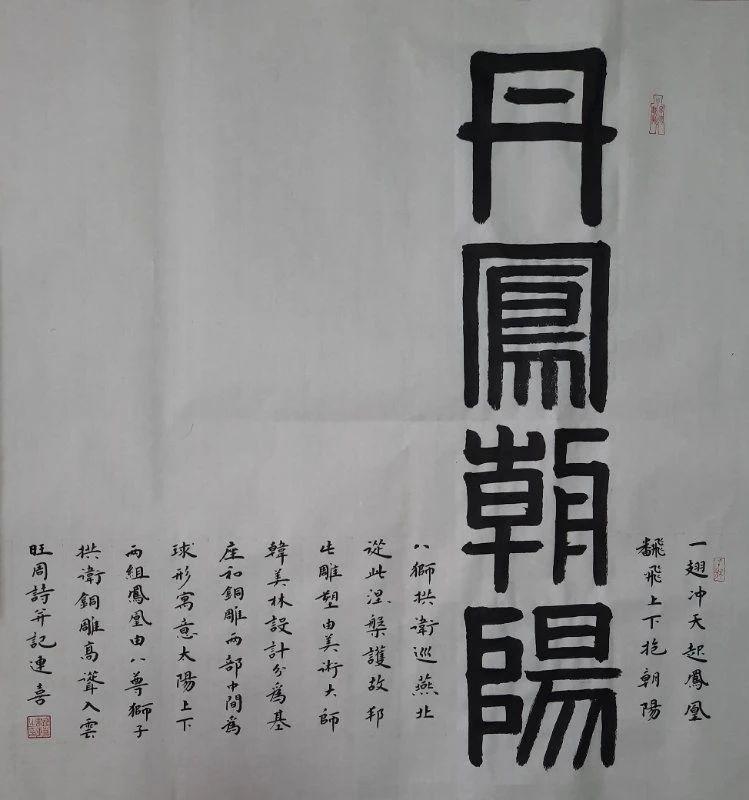 一翅冲天起鳳凰
翻飛上下抱朝陽
丹鳳朝陽
八獅拱衛巡燕北
從此涅槃護故邦
此雕塑由美術大師
韓美林設計分為基
座和銅雕兩部中間為
球形寓意太陽上下
兩組鳳凰由八尊獅子
拱衛銅雕高聳入雲
旺周詩并記連喜